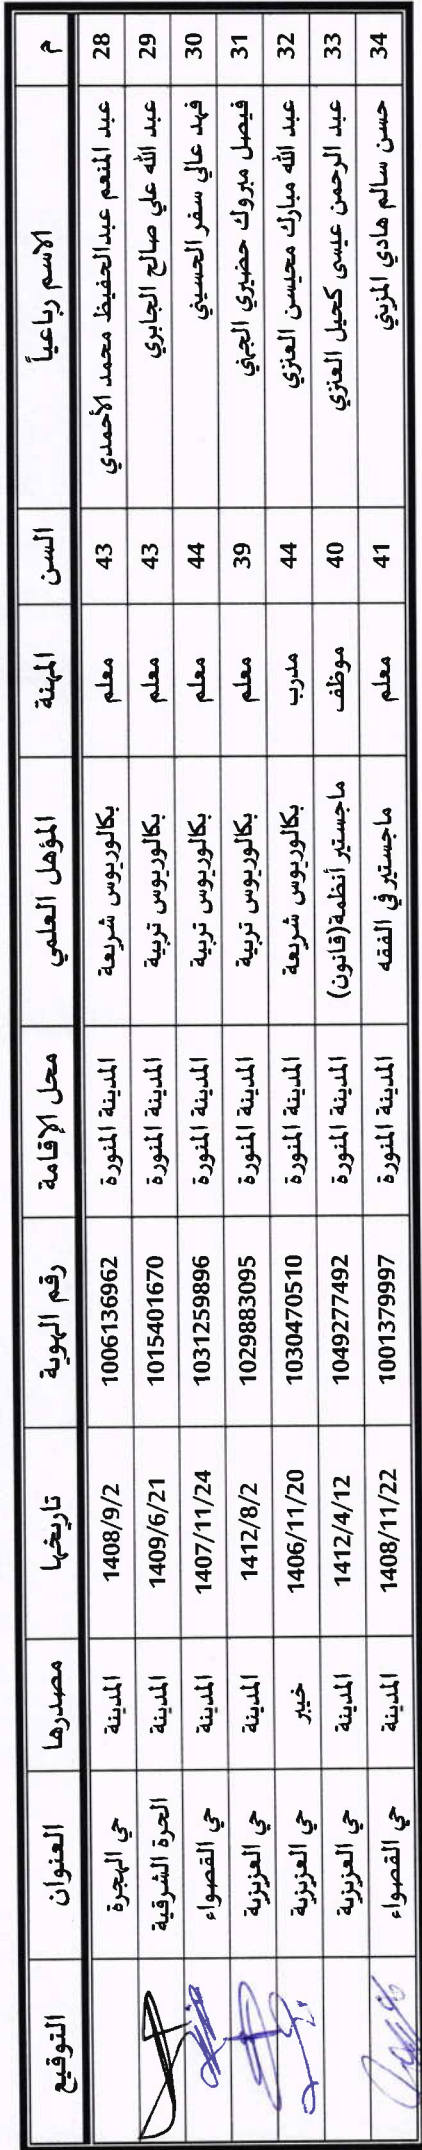 م الاسم رباعياً السن المهنة المؤهل العلمي محل الإقامة رقم الهوية تاريخها مصدرها العنوان التوقيع
28 عبد المنعم عبدالحفيظ محمد الأحمدي 43 معلم بكالوريوس شريعة المدينة المنورة 1006136962 1408/9/2 المدينة حي الهجرة
29 عبد الله علي صالح الجابري 43 معلم بكالوريوس تربية المدينة المنورة 1015401670 1409/6/21 المدينة الحرة الشرقية
30 فهد عالي سفر الحسيني 44 معلم بكالوريوس تربية المدينة المنورة 1031259896 1407/11/24 المدينة حي القصواء
31 فيصل مبروك حضيري الجهني 39 معلم بكالوريوس تربية المدينة المنورة 1029883095 1412/8/2 المدينة حي العزيزية
32 عبد الله مبارك محيسن العنزي 44 مدرب بكالوريوس شريعة المدينة المنورة 1030470510 1406/11/20 خيبر حي العزيزية
33 عبد الرحمن عيسى كحيل العنزي 40 موظف ماجستير أنظمة(قانون) المدينة المنورة 1049277492 1412/4/12 المدينة حي العزيزية
34 حسن سالم هادي المزيني 41 معلم ماجستير في الفقه المدينة المنورة 1001379997 1408/11/22 المدينة حي القصواء